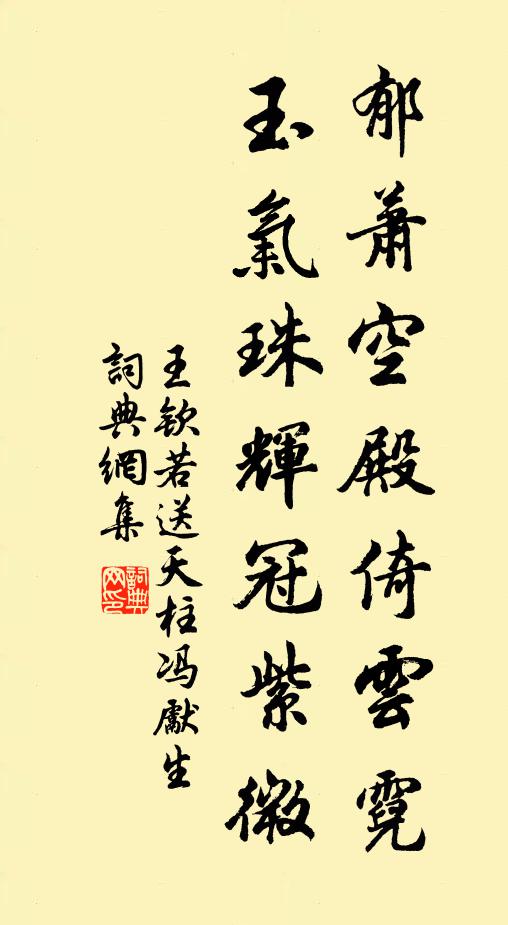 郁蕭空殿倚雲霓
玉氣珠輝冠紫微
王欽若送天柱馮獻生
詞典網集
詞典網印